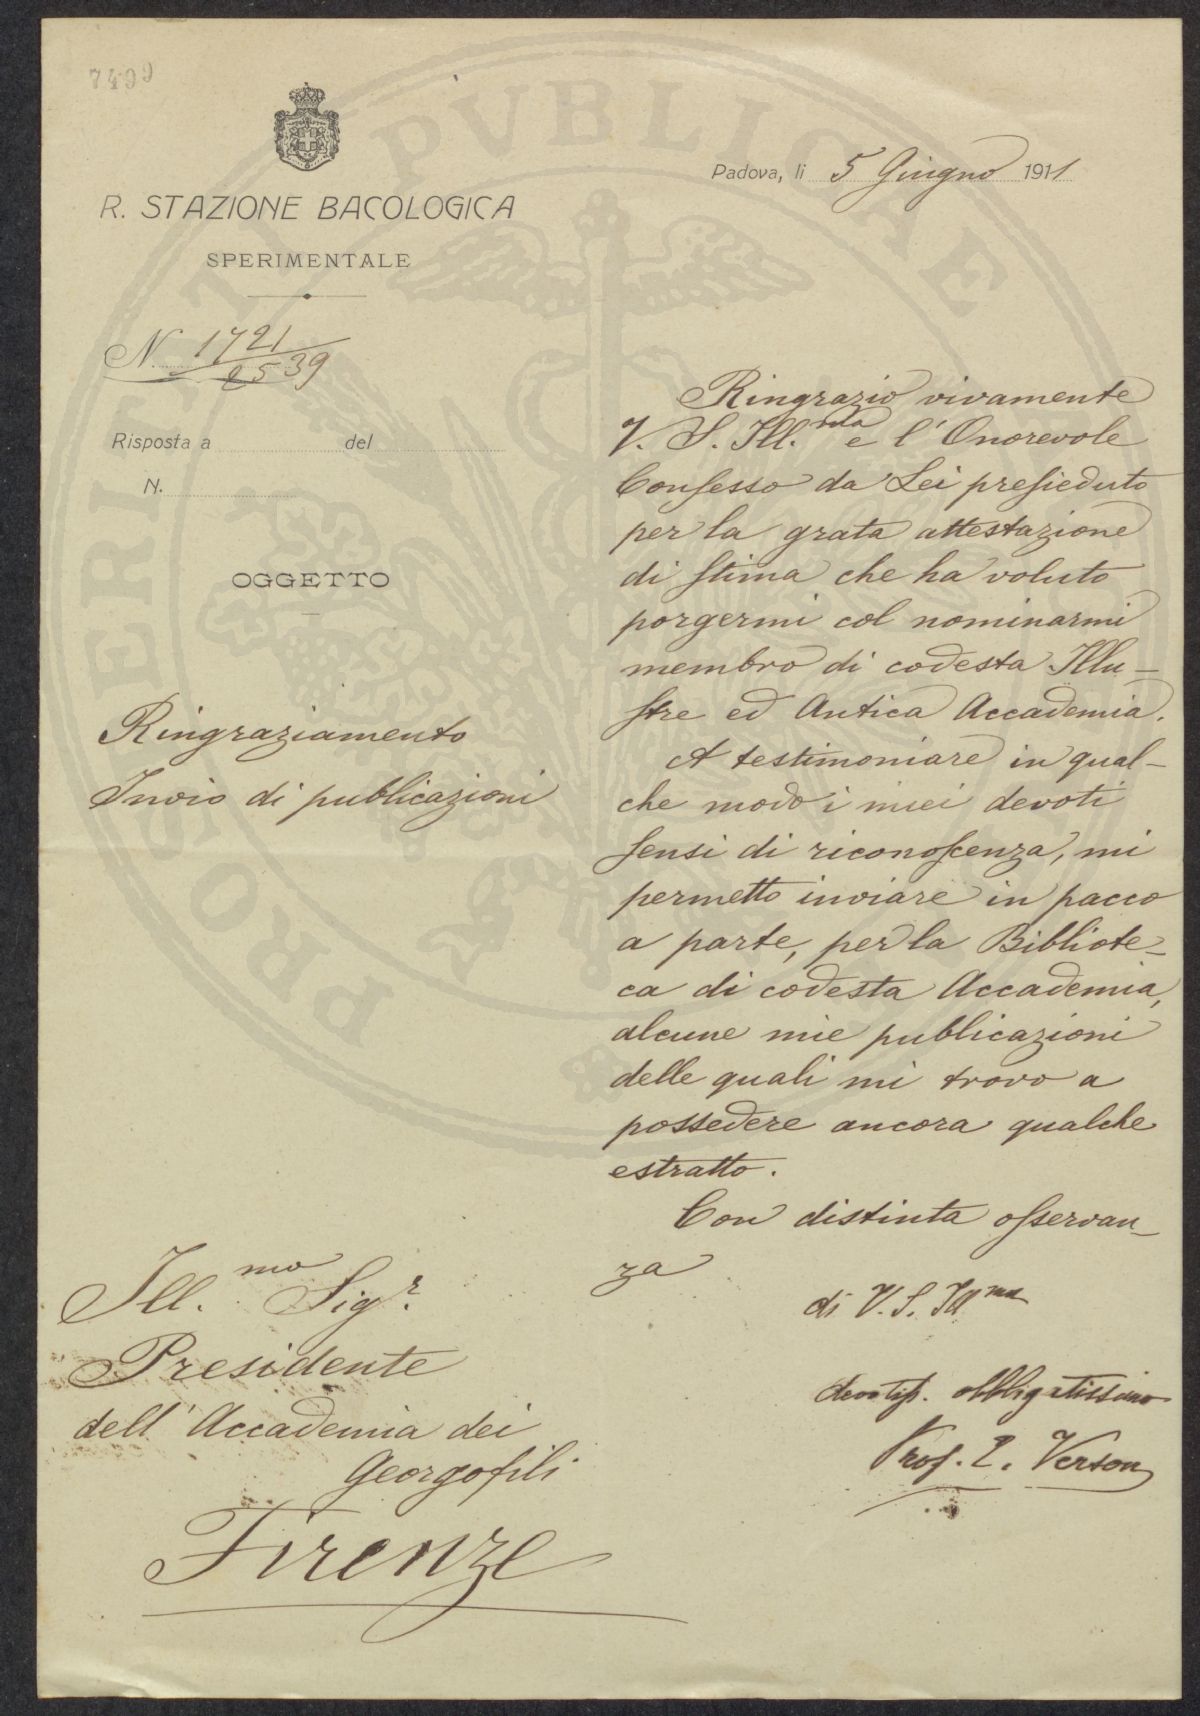 7499
R. STAZIONE BACOLOGICA
SPERIMENTALE
Padova, li 5 Giugno 1911
N. 1721
2539
Risposta a del
N.
OGGETTO
Ringraziamento
Invio di pubblicazioni
Ringrazio vivamente
V. S. Ill.ma e l'Onorevole
Consesso da Lei presieduto
per la grata attestazione
di stima che ha voluto
porgermi col nominarmi
membro di codesta Illu-
stre ed Antica Accademia.
A testimoniare in qual-
che modo i miei devoti
sensi di riconoscenza, mi
permetto inviare in pacco
a parte, per la Bibliote-
ca di codesta Accademia,
alcune mie pubblicazioni
delle quali mi trovo a
possedere ancora qualche
estratto.
Con distinta osservan-
za
di V. S. Ill.ma
devotiss. obbligatissimo
Prof. E. Verson
Ill.mo Sigr.
Presidente
dell'Accademia dei
Georgofili
Firenze
PROSPERITATI PVBLICAE